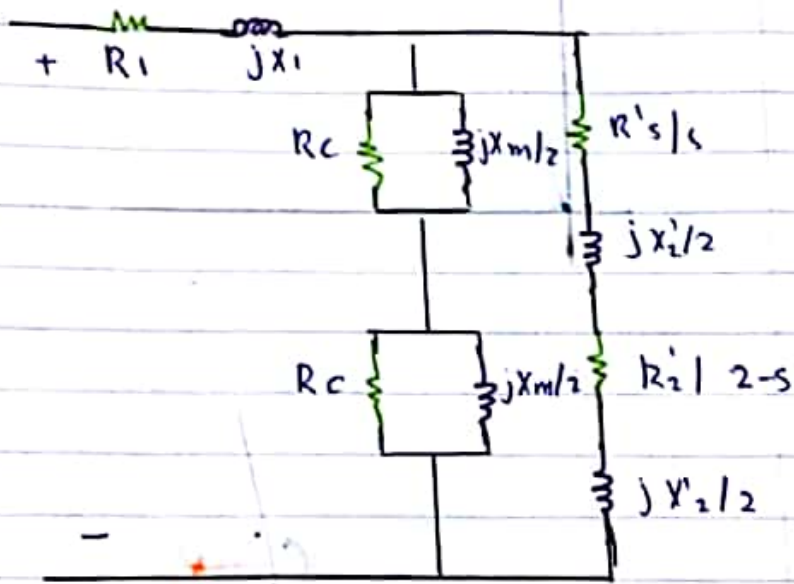 + R1 jx1
Rc jXm/2 R's/s
jx'2/2
Rc jXm/2 R'2| 2-s
jX'2/2
-